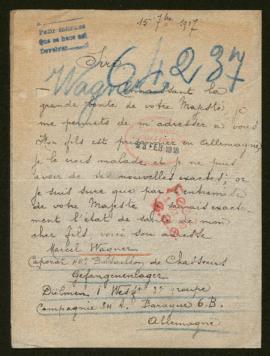 15 7bre 1917
Pedir informes
Que se hace así
Devolver
64237
Sire
Wagner
Connaissant la
grande bonté de votre Majesté, je
me permets de m'adresser à vous
Mon fils est prisonnier en Allemagne,
je le crois malade et je ne puis
avoir de ses nouvelles exactes; or
je suis sure que par l'entremise
de votre Majesté je saurais exacte-
ment l'état de santé de mon
cher fils voici son adresse
Marcel Wagner
Caporal Bataillon de Chasseurs
Gefangenenlager
Dülmen, 1 Westf 2e groupe
Compagnie 34 A. Baraque 6 B.
Allemagne